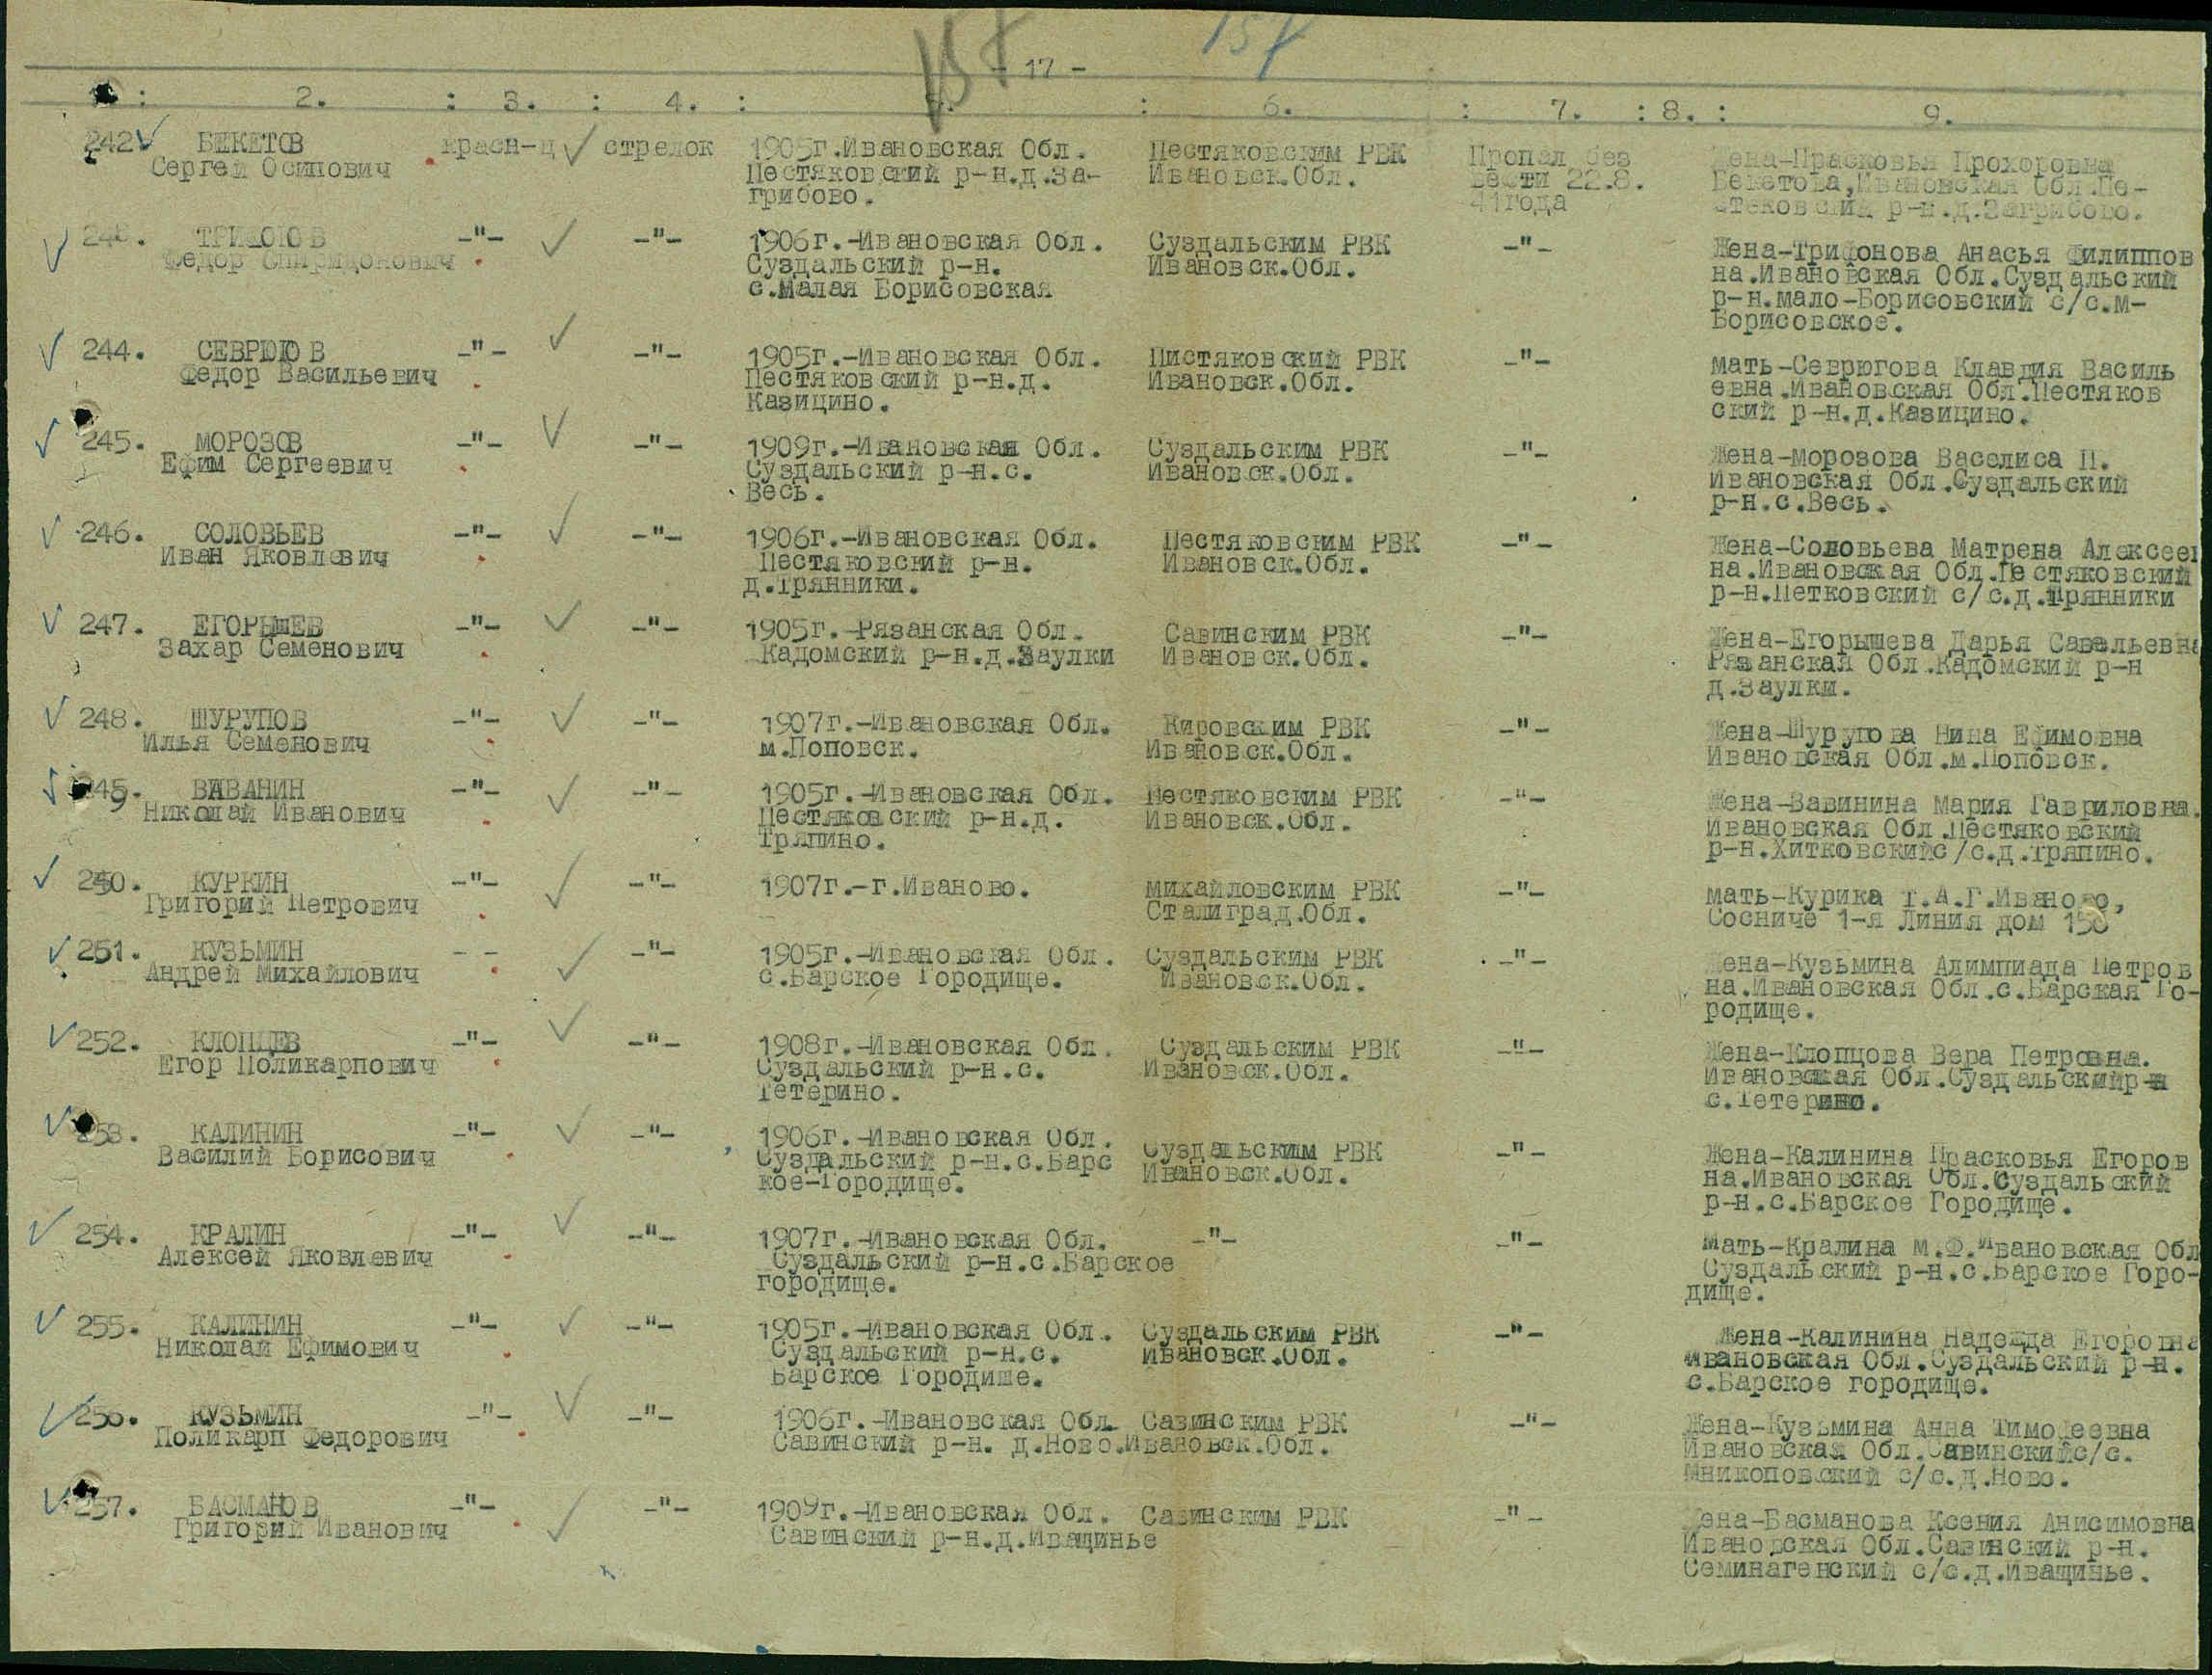 157
157
- 17 -
: 2. : 3. : 4. : 5. : 6. : 7. : 8. : 9.
242 БЕКЕТОВ красн-ц стрелок 1905г.Ивановская Обл. Пестяковским РВК Пропал без Жена-Прасковья Прохоровна
Сергей Осипович Пестяковский р-н.д.За- Ивановск.Обл. вести 22.8. Бекетова,Ивановская Обл.Пе-
грибово. 41года стяковский р-н.д.Загрибово.
243. ТРИФОНОВ -"- -"- 1906г.-Ивановская Обл. Суздальским РВК -"- Жена-Трифонова Анасья Филиппов
Федор Спиридонович Суздальский р-н. Ивановск.Обл. на.Ивановская Обл.Суздальский
с.Малая Борисовская р-н.мало-Борисовский с/с.м-
Борисовское.
244. СЕВРЮГОВ -"- -"- 1905г.-Ивановская Обл. Пистяковский РВК -"- мать-Севрюгова Клавдия Василь
Федор Васильевич Пестяковский р-н.д. Ивановск.Обл. евна.Ивановская Обл.Пестяков
Казицино. ский р-н.д.Казицино.
245. МОРОЗОВ -"- -"- 1909г.-Ивановская Обл. Суздальским РВК -"- Жена-морозова Васелиса П.
Ефим Сергеевич Суздальский р-н.с. Ивановск.Обл. Ивановская Обл.Суздальский
Весь. р-н.с.Весь.
246. СОЛОВЬЕВ -"- -"- 1906г.-Ивановская Обл. Пестяковским РВК -"- Жена-Соловьева Матрена Алексеев
Иван Яковлевич Пестяковский р-н. Ивановск.Обл. на.Ивановская Обл.Пестяковский
д.Трянники. р-н.Петковский с/с.д.Трянники
247. ЕГОРЫШЕВ -"- -"- 1905г.-Рязанская Обл. Савинским РВК -"- Жена-Егорышева Дарья Савельевна
Захар Семенович Кадомский р-н.д.Заулки Ивановск.Обл. Рязанская Обл.Кадомский р-н
д.Заулки.
248. ШУРУПОВ -"- -"- 1907г.-Ивановская Обл. Кировским РВК -"- Жена-Шурупова Нина Ефимовна
Илья Семенович м.Поповск. Ивановск.Обл. Ивановская Обл.м.Поповск.
249. ВАВАНИН -"- -"- 1905г.-Ивановская Обл. Пестяковским РВК -"- Жена-Вавинина Мария Гавриловна.
Николай Иванович Пестяковский р-н.д. Ивановск.Обл. Ивановская Обл.Пестяковский
Тряпино. р-н.Хитковскийс/с.д.тряпино.
250. КУРКИН -"- -"- 1907г.-г.Иваново. михайловским РВК -"- мать-Курика т.А.Г.Иваново,
Григорий Петрович Сталиград.Обл. Сосниче 1-я Линия дом 158
251. КУЗЬМИН - - -"- 1905г.-Ивановская Обл. Суздальским РВК -"- Жена-Кузьмина Алимпиада Петров
Андрей михайлович с.Барское Городище. Ивановск.Обл. на.Ивановская Обл.с.Барская Го-
родище.
252. КЛОПЦЕВ -"- -"- 1908г.-Ивановская Обл. Суздальским РВК -"- Жена-Клопцова Вера Петровна.
Егор Поликарпович Суздальский р-н.с. Ивановск.Обл. Ивановская Обл.Суздальскийр-н
Тетерино. с.Тетерино.
253. КАЛИНИН -"- -"- 1906г.-Ивановская Обл. Суздальским РВК -"- Жена-Калинина Прасковья Егоров
Василий Борисович Суздальский р-н.с.Барс Ивановск.Обл. на.Ивановская Обл.Суздальский
кое-Городище. р-н.с.Барское Городище.
254. КРАЛИН -"- -"- 1907г.-Ивановская Обл. -"- -"- мать-Кралина м.Ф.Ивановская Обл
Алексей Яковлевич Суздальский р-н.с.Барское Суздальский р-н.с.Барское Горо-
городище. дище.
255. КАЛИНИН -"- -"- 1905г.-Ивановская Обл. Суздальским РВК -"- Жена-Калинина Надежда Егоровна
Николай Ефимович Суздальский р-н.с. Ивановск.Обл. Ивановская Обл.Суздальский р-н.
Барское Городище. с.Барское городище.
256. КУЗЬМИН -"- -"- 1906г.-Ивановская Обл. Савинским РВК -"- Жена-Кузьмина Анна Тимофеевна
Поликарп Федорович Савинский р-н. д.Ново.Ивановск.Обл. Ивановская Обл.Савинскийс/с.
Мникоповский с/с.д.Ново.
257. БАСМАНОВ -"- -"- 1909г.-Ивановская Обл. Савинским РВК -"- Жена-Басманова Ксения Анисимовна
Григорий Иванович Савинский р-н.д.Иващинье Ивановская Обл.Савинский р-н.
Семинагенский с/с.д.Иващинье.